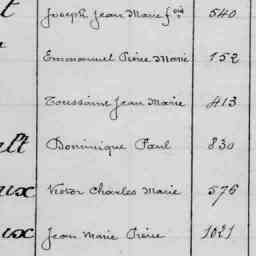 Joseph Jean Marie fois 540
Emmanuel Pierre Marie 152
Toussaint Jean Marie 413
Dominique Paul 830
Victor Charles Marie 576
Jean Marie Pierre 1021